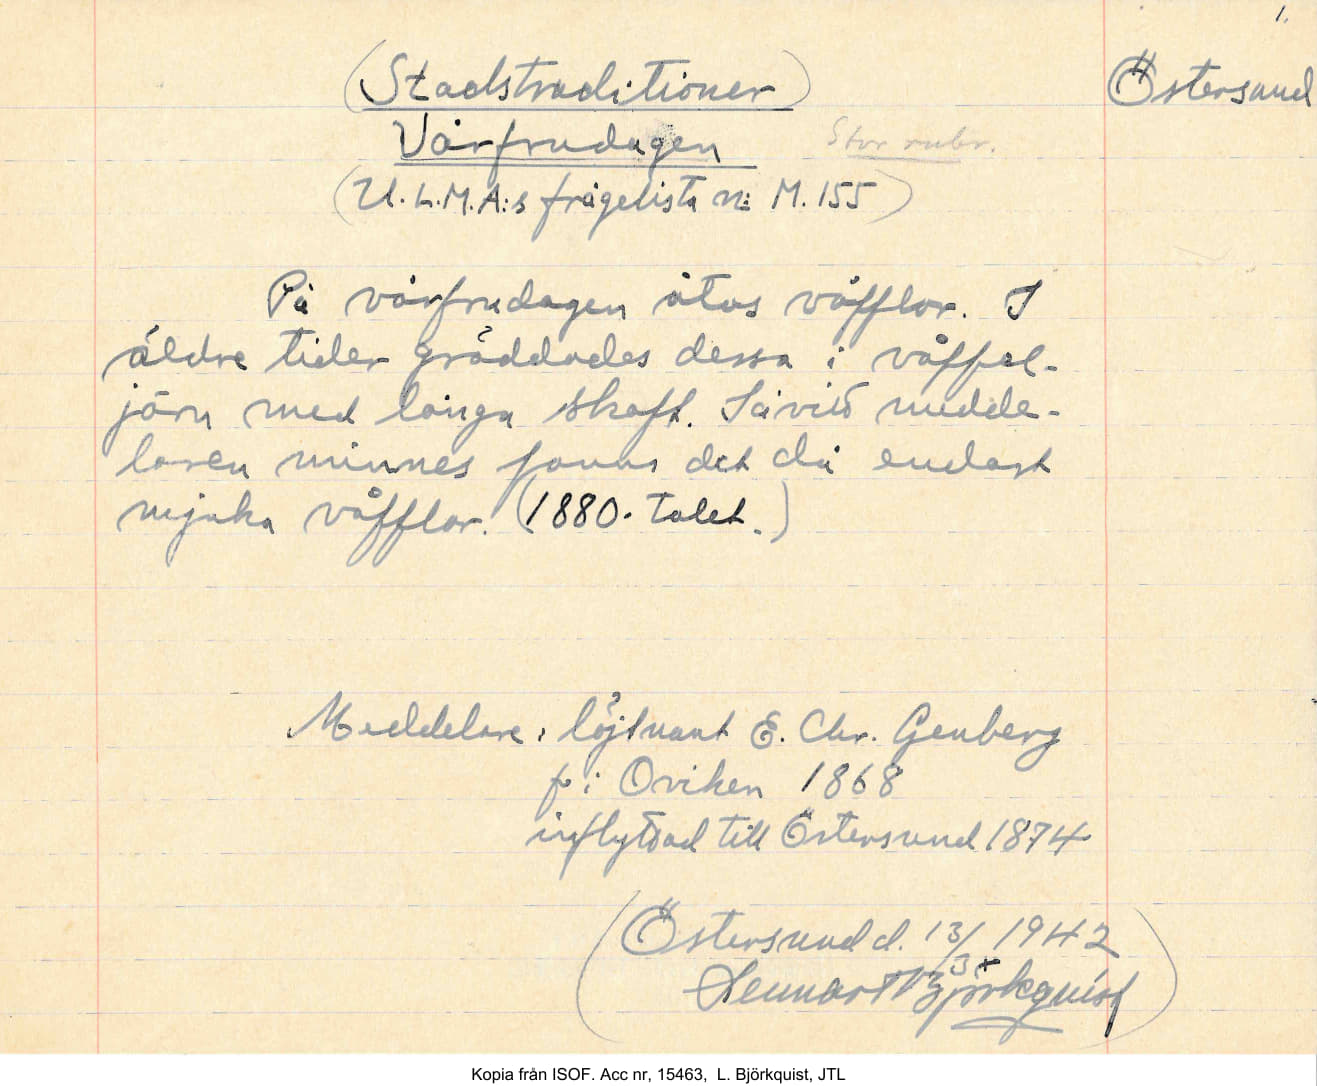 1.
(Stadstraditioner) Östersund
Vårfrudagen Stor rubr.
(U.L.M.A:s frågelista n: M. 155)
På vårfrudagen åtos våfflor. I
äldre tider gräddades dessa i våffel-
järn med långa skaft. Såvitt medde-
laren minnes fanns det då endast
mjuka våfflor. (1880-talet.)
Meddelare: löjtnant E. Chr. Genberg
f. i Oviken 1868
inflyttad till Östersund 1874
(Östersund d. 13/3 1942
Lennart Björkquist)
Kopia från ISOF. Acc nr, 15463, L. Björkquist, JTL